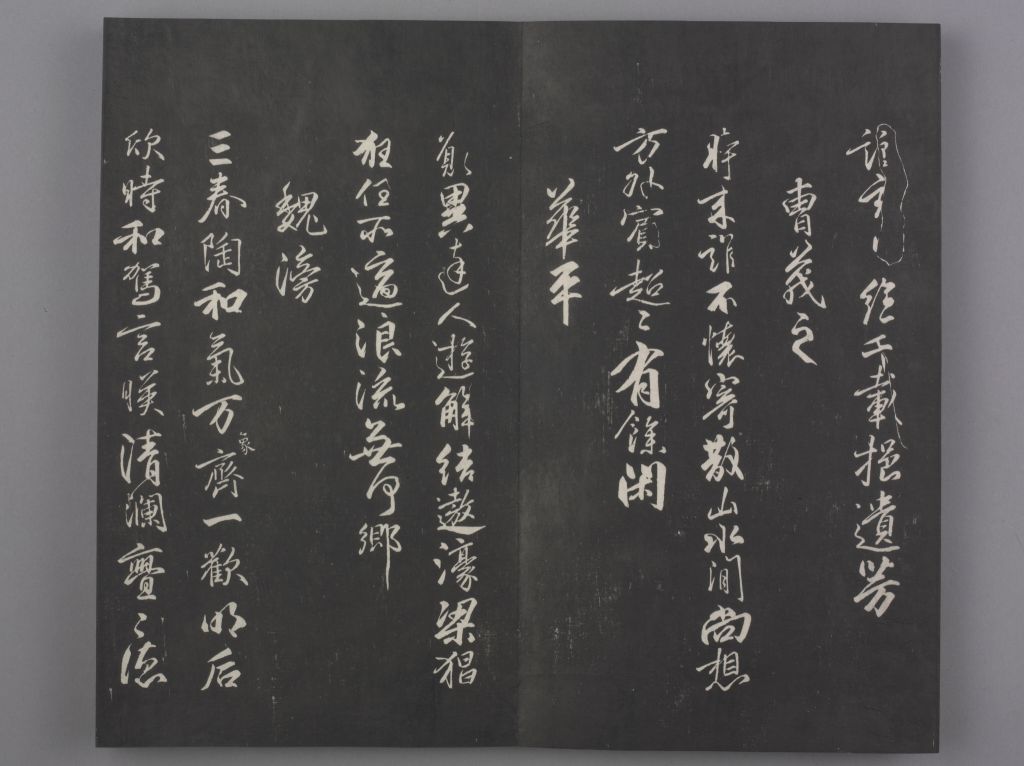 絶千載挹遺芳
曹茂之
時来誰不懷寄散山水澗尚想
方外賓超〻有餘閑
華平
願與達人遊解結遨濠梁猖
狂任所適浪流無何鄉
魏滂
三春陶和氣万象齊一歡明后
欣時和駕言暎清瀾亹〻德